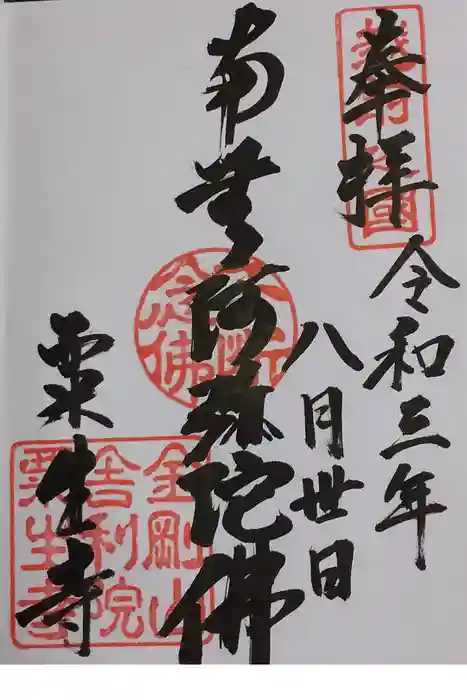 奉拝
令和三年
八月丗日
南無阿弥陀佛
粟生寺
金剛山
舎利院
粟生寺
念佛